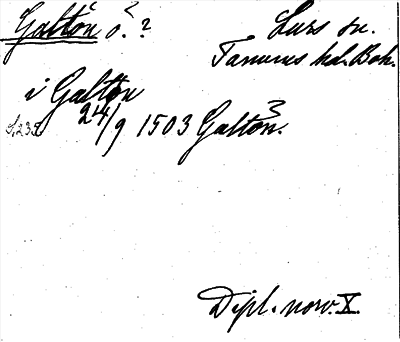 Galtön ö.? Lurs sn.
Tanums hd. Boh.
i Galtön
24/9 1503 Galtön.
Dipl. norv. X.